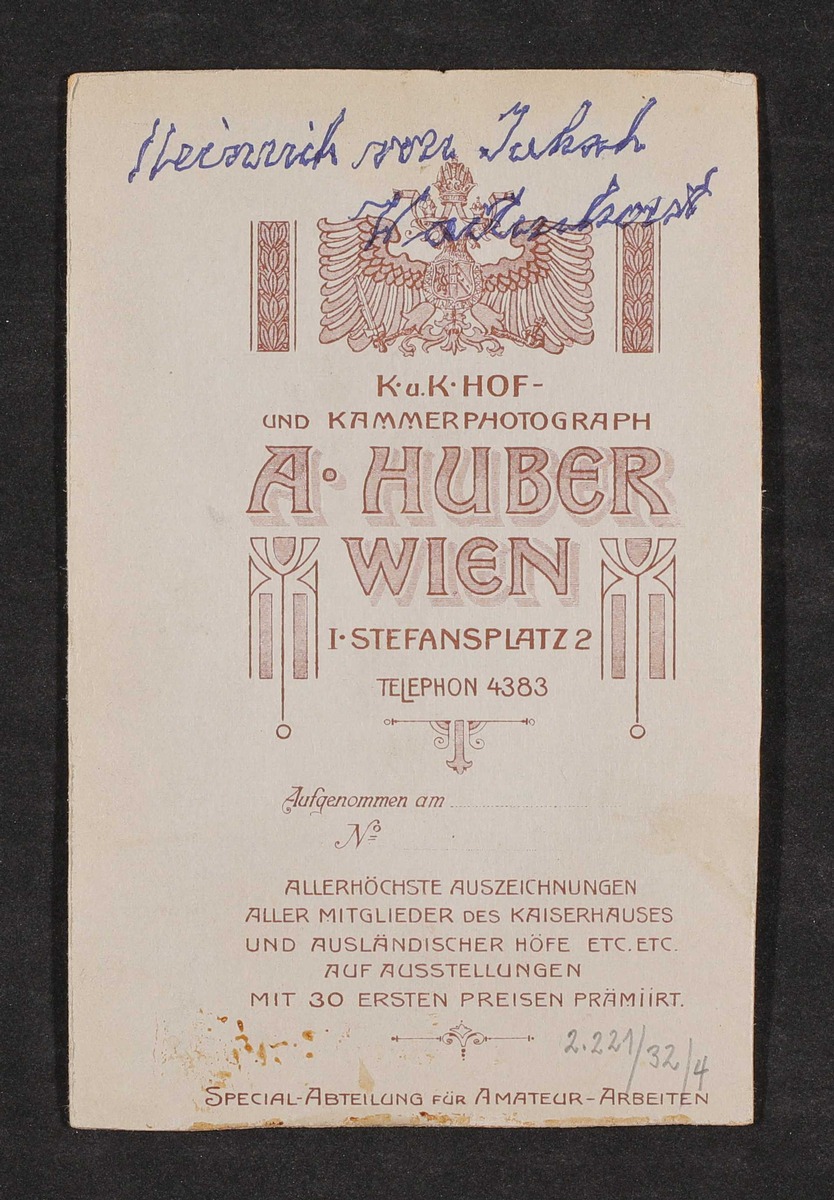 Heinrich von
K. u. K. HOF-
UND KAMMERPHOTOGRAPH
A. HUBER
WIEN
I. STEFANSPLATZ 2
TELEPHON 4383
Aufgenommen am
No
ALLERHÖCHSTE AUSZEICHNUNGEN
ALLER MITGLIEDER DES KAISERHAUSES
UND AUSLÄNDISCHER HÖFE ETC. ETC.
AUF AUSSTELLUNGEN
MIT 30 ERSTEN PREISEN PRÄMIIRT.
2.221/32/4
SPECIAL-ABTEILUNG FÜR AMATEUR-ARBEITEN